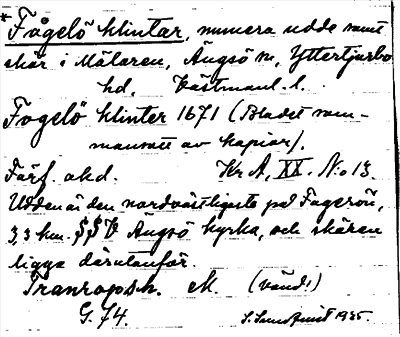 * Fågelö klintar, numera udde samt
skär i Mälaren, Ängsö sn, Yttertjurbo
hd. Västmanl. l.
Fogelö klinter 1671 (Bladet sam-
mansatt av kopior).
Förf. okd. Kr. A. XX. No 13.
Udden är den nordvästligaste på Fagerön,
3,3 km. SSV Ängsö kyrka, och skären
ligga därutanför.
Tranropsn. eK. (vänd!)
G. 74. S. Sundquist 1935.